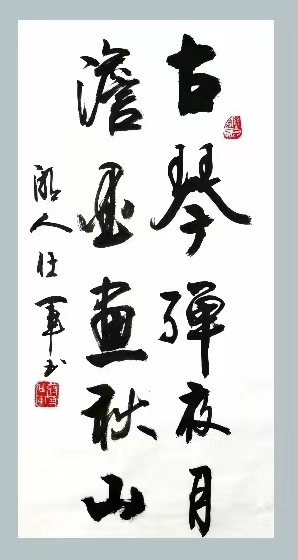 古琴彈夜月
澹墨畫秋山
人任軍书